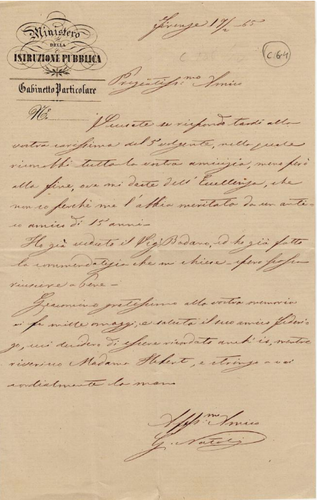 Ministero
DELLA
ISTRUZIONE PUBBLICA
Gabinetto Particolare
N.º
Firenze 19/2 65
C 64
Pregiatess.mo Amico
Scusate se rispondo tardi alla
vostra carissima del 5 volgente, nella quale
tutta la vostra amicizia, meno però
alla fine, ove mi date dell'Eccellenza, che
non so perchè me l'abbia meritata da un anti=
co amico di 15 anni.
Ho già veduto il Sig. Badano, ed ho già fatto
la commendatizia che mi chiese, spero possa
riuscire bene.
Giacomino alla vostra memoria
vi fa mille omaggi, e saluta il suo amico
ge, cui desidera di essere ricordato anch'io, mentre
riverisco Madame Hebert, e stringo a voi
cordialmente la mano.
Aff.mo Amico
G. Natoli